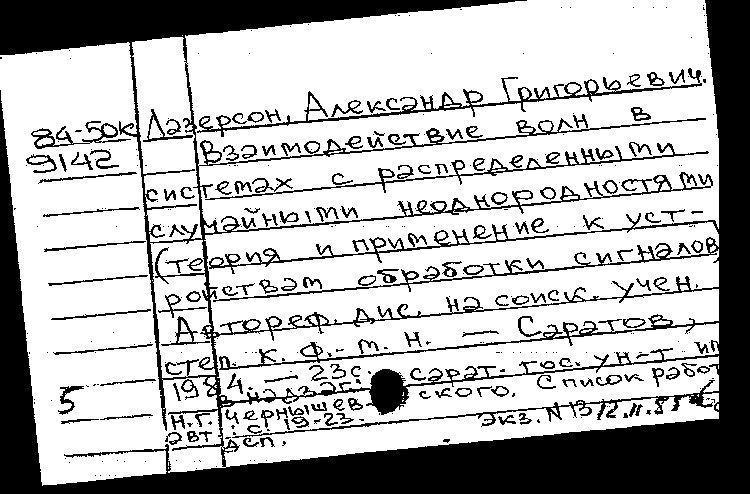 84-50к Лазерсон, Александр Григорьевич.
9142 Взаимодействие волн в
системах с распределенными
случайными неоднородностями
(теория и применение к уст-
ройствам обработки сигналов
Автореф. дис. на соиск. учен.
степ. к. ф.-м. н. — Саратов,
1984. — 23с.
В надзаг.: Сарат. гос. ун-т им
5 Н.Г. Чернышевского. Список работ
авт.: с. 19-23.
дсп. Экз. N 13